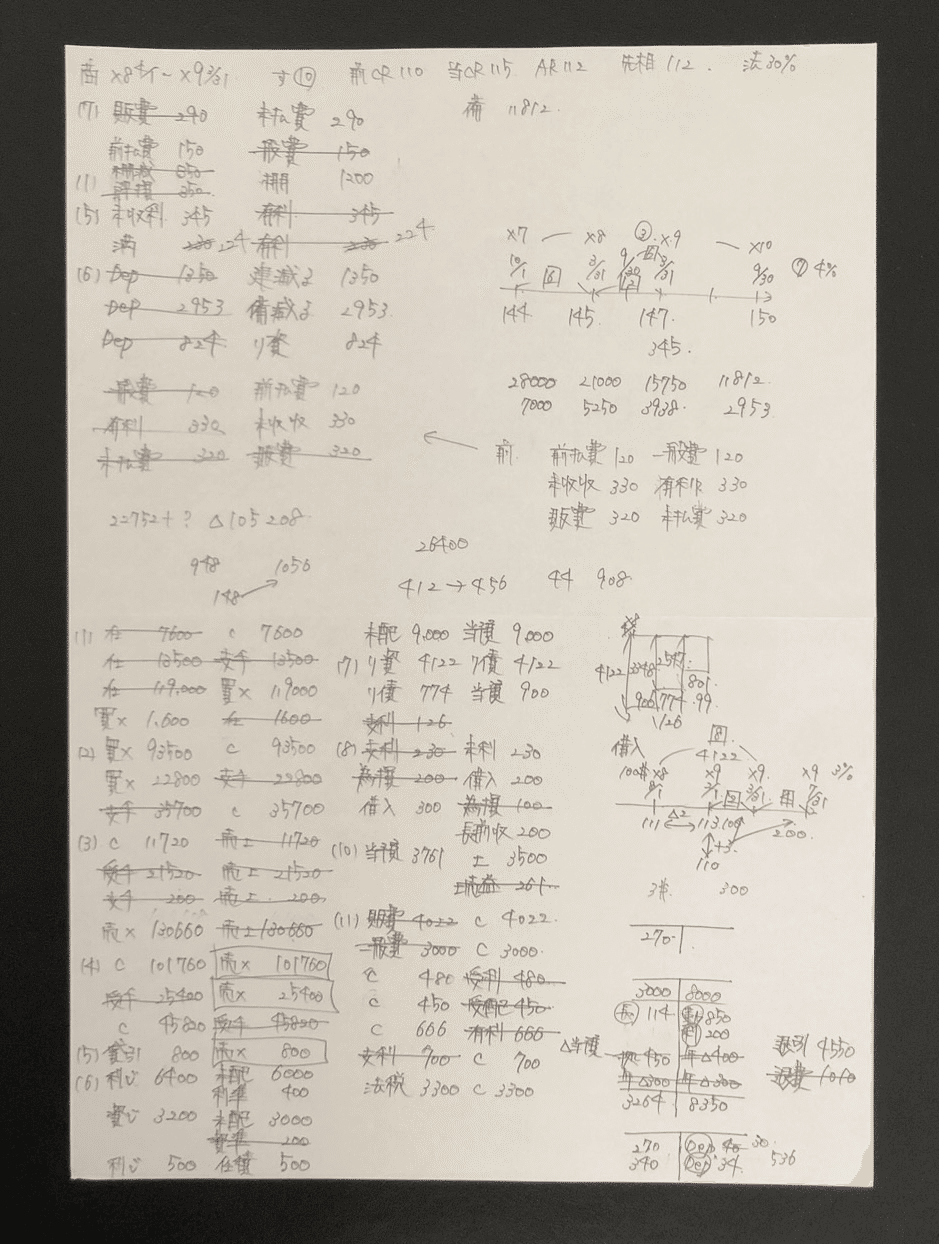 商 x8 4/1 ~ x9 3/31 千⑩ 前CR110 当CR115 AR112 先相112. 法30%
(7) 販費 290 未払費 290 備 11812
前払費 150 一般費 150
棚減 350
(1) 評損 350 棚 1200
(5) 未収利 345 有利 345
満 230 224 有利 230 224
(6) Dep 1350 建減る 1350
Dep 2953 備減る 2953
Dep 824 リ資 824
x7 x8 ② x9 x10
10/1 ⑥ 3/31 9/30 3/31 9/30 ⑦ 4%
144 145 147 150
345
28000 21000 15750 11812
7000 5250 3938 2953
一般費 120 前払費 120
有利 330 未収収 330
未払費 320 販費 320
← 前 前払費 120 一般費 120
未収収 330 有利 330
販費 320 未払費 320
22752+? △105208
26400
948 1056
148
412→456 44 908
(1) 仕 7600 C 7600
仕 13500 支手 13500
仕 119,000 買× 119000
買× 1,600 仕 1600
(2) 買× 93500 C 93500
買× 22800 支手 22800
支手 35700 C 35700
(3) C 11720 売上 11720
受手 21520 売上 21520
支手 200 売上 200
売× 130660 売上 130660
(4) C 101760 売× 101760
受手 25400 売× 25400
C 45820 受手 45820
(5) 貸引 800 売× 800
(6) 利じ 6400 未配 6000
利準 400
資じ 3200 未配 3000
資準 200
利じ 500 任積 500
未配 9,000 当預 9,000
(7) リ資 4122 リ債 4122
リ債 774 当預 900
支利 126
(8) 支利 230 未利 230
為損 200 借入 200
借入 300 為損 100
長前収 200
(10) 当預 3761 土 3500
土売益 261
(11) 販費 4022 C 4022
一般費 3000 C 3000
C 480 受利 480
C 450 受配 450
C 666 有利 666
支利 700 C 700
法税 3300 C 3300
4122 3348 2547
801
900 774 99
126
借入 4122
100$ x8 x9 x9 x9 3%
8/1 3/1 3/31 7/31
111 △2 113 109
+3 200
110
3$ 300
270
3000 8000
114 850
200
△当預 450 △400
△300 △300
3264 8350
貸引 4550
1010
270 Dep 40 30
340 Dep 34 536